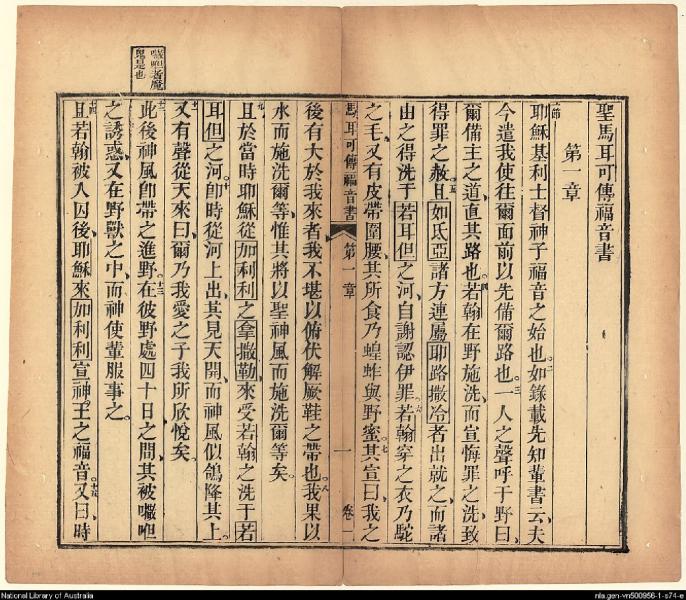 聖馬耳可傳福音書
第一章
一節耶穌基利士督神子福音之始也。二如錄載先知輩書云、夫
今遣我使往爾面前以先備爾路也。三一人之聲呼于野曰、
爾備主之道、直其路也。四若翰在野施洗、而宣悔罪之洗、致
得罪之赦。五且如氏亞諸方連屬耶路撒冷者出就之、而諸
由之得洗于若耳但之河、自謝認伊罪。六若翰穿之衣乃駝
之毛、又有皮帶圍腰、其所食乃蝗蚱與野蜜。七其宣曰、我之
馬耳可傳福音書 第一章 一 卷二
後有大於我來者我不堪以俯伏解厥鞋之帶也。八我果以
水而施洗爾等、惟其將以聖神風而施洗爾等矣。
九且於當時耶穌從加利利之拿撒勒來受若翰之洗于若
耳但之河。十即時從河上出、其見天開、而神風似鴿降其上。
十一又有聲從天來曰、爾乃我愛之子我所欣悅矣。
㘔呾者魔
鬼是也
十二此後神風即帶之進野。十三在彼野處四十日之間、其被㘔呾
之誘惑、又在野獸之中、而神使輩服事之。
十四且若翰被人囚後、耶穌來加利利宣神王之福音。十五又曰、時
National Library of Australia
nla.gen-vn500956-1-s74-e